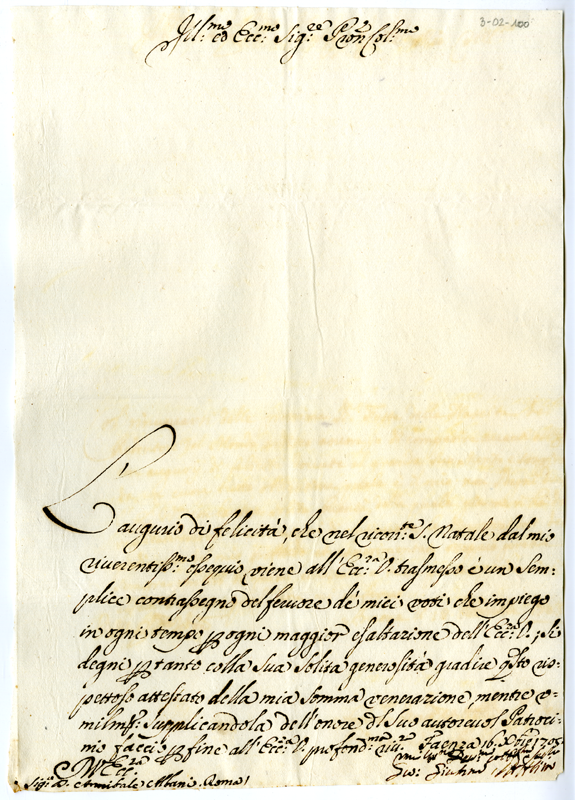 3-02-100
Ill:mo ed Ecc:mo Sig:re Pron Col:mo
L'augurio di felicità, che nel ricor:te S. Natale dal mio
riverentiss:mo ossequio viene all'Ecc:za V. trasmesso è un sem-
plice contrassegno del fervore de' miei voti che impiego
in ogni tempo p ogni maggior esaltazione dell'Ecc:za V.; si
degni p tanto colla sua solita generosità gradire qsto ris-
pettoso attestato della mia somma venerazione, mentre u-
milmte: supplicandola dell'onore di suo autorevol Patroci-
nio faccio p fine all'Ecc:za V. profond:ma riv:za Faenza 16. Xbre 1705
D V. Ecc:za
Sig:r D. Annibale Albani. Roma